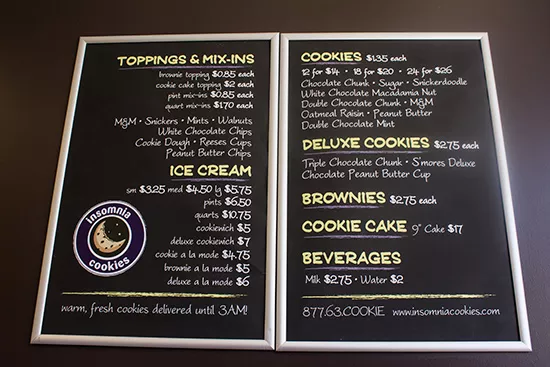 TOPPINGS & MIX-INS
brownie topping $0.85 each
cookie cake topping $2 each
pint mix-ins $0.85 each
quart mix-ins $1.70 each
M&M • Snickers • Mints • Walnuts
White Chocolate Chips
Cookie Dough • Reeses Cups
Peanut Butter Chips
ICE CREAM
sm $3.25 med $4.50 lg $5.75
pints $6.50
quarts $10.75
cookiewich $5
deluxe cookiewich $7
cookie a la mode $4.75
brownie a la mode $5
deluxe a la mode $6
insomnia
cookies
warm, fresh cookies delivered until 3AM!
COOKIES $1.35 each
12 for $14 • 18 for $20 • 24 for $26
Chocolate Chunk • Sugar • Snickerdoodle
White Chocolate Macadamia Nut
Double Chocolate Chunk • M&M
Oatmeal Raisin • Peanut Butter
Double Chocolate Mint
DELUXE COOKIES $2.75 each
Triple Chocolate Chunk • S'mores Deluxe
Chocolate Peanut Butter Cup
BROWNIES $2.75 each
COOKIE CAKE 9" Cake $17
BEVERAGES
Milk $2.75 • Water $2
877.63.COOKIE www.insomniacookies.com